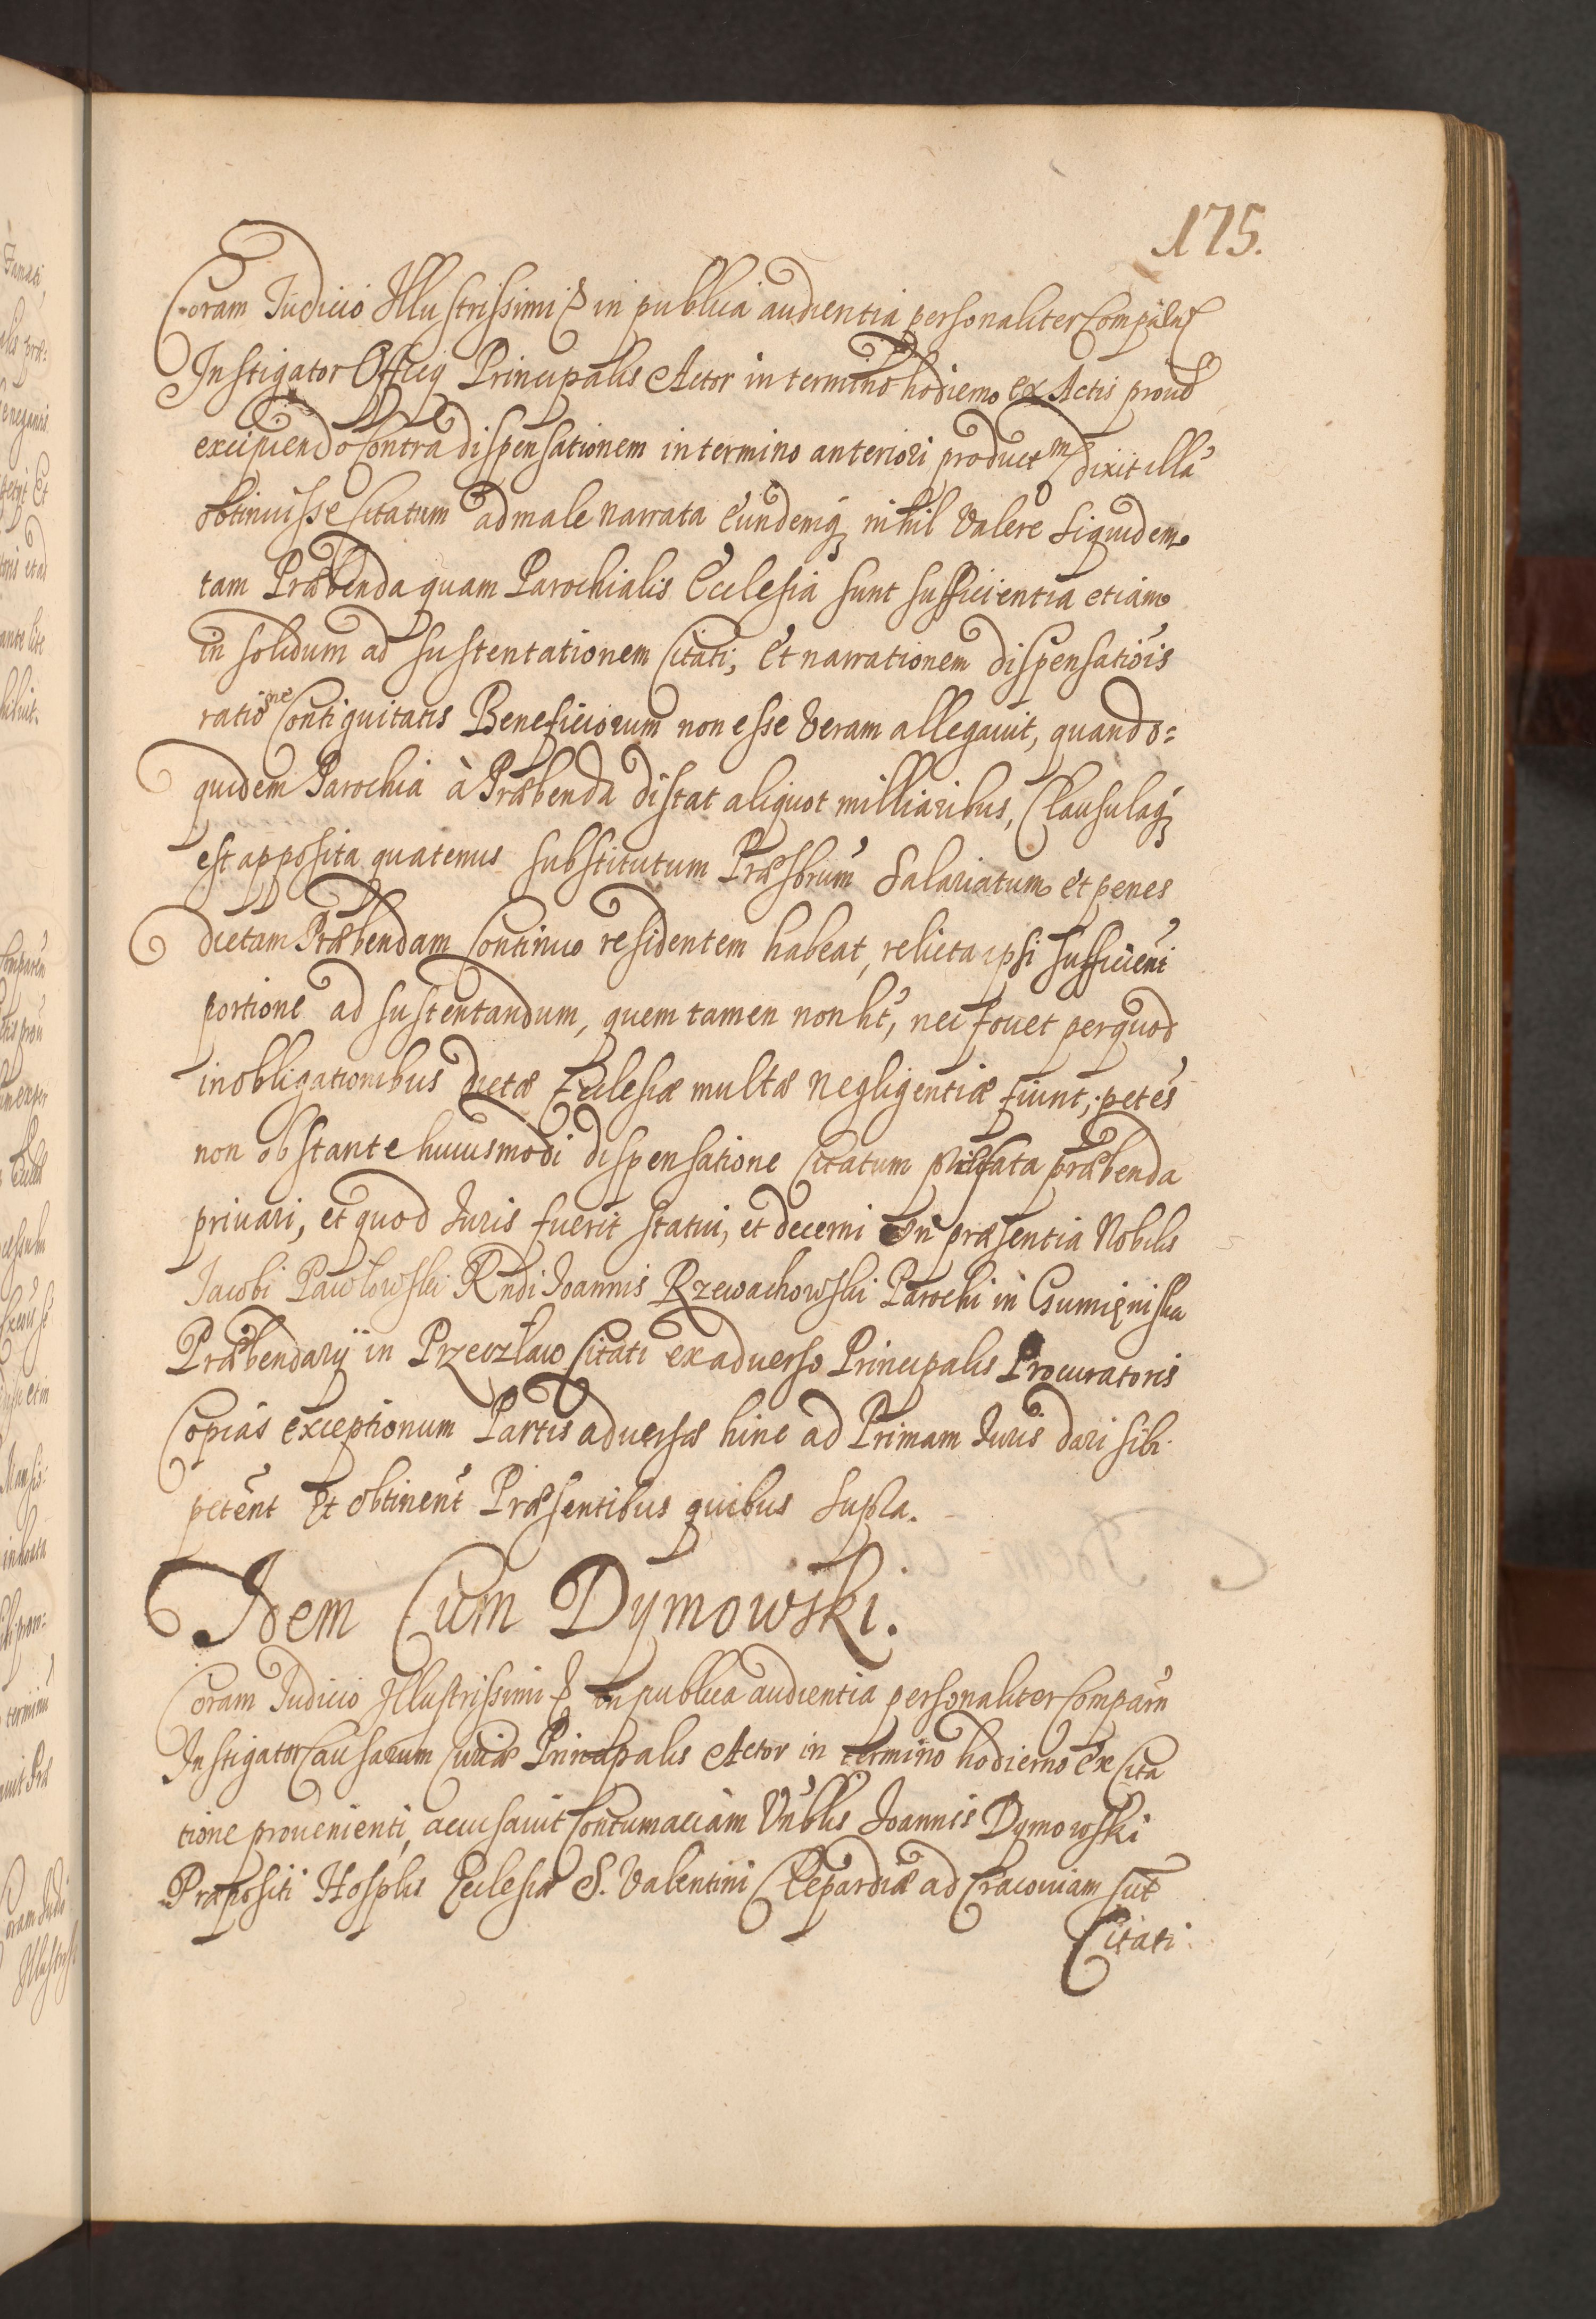 175.
Coram Judicio Illustrissimi & in publica audientia personaliter
Instigator Officy Principalis Actor in termino hodierno ex Actis prout
excipiendo Contra dispensationem in termino anteriori product m dixit illā
obtinuisse Citatum ad male narrata eundemq nihil Valere siquidem
tam Præbenda quam Parochialis Ecclesia sunt sufficientia etiam
in solidum ad sustentationem Citati, Et narrationem dispensatiōis
ratiōne Contiguitatis Beneficiorum non esse Veram allegavit, quando=
quidem Parochia à Præbenda distat aliquot milliaribus, Clausulaq
est apposita quatenus substitutum Præsbrum Salariatum et penes
dictam Præbendam Continuo residentem habeat, relicta ipsi sufficienti
portione ad sustentandum, quem tamen non ht, nec fovet per quod
in obligationibus dictæ Ecclesiæ multæ negligentiæ fiunt, petēs
non obstante huiusmodi dispensatione Citatum præbenda
privari, et quod Juris fuerit statui, et decerni In præsentia Nobilis
Jacobi Pawlowski Rndi Joannis Rzewachowski Parochi in Gumięniska
Præbendarij in Przevzław Citati ex adverso Principalis Procuratoris
Copias exceptionum Partis adversæ hinc ad Primam Juris dari sibi
petēnt Et obtinēnt Præsentibus quibus supra.
Idem Cum Dymowski.
Coram Judicio Illustrissimi & in publica audientia personaliter Comparn
Instigator Causarum Curiæ Principalis Actor in termino hodierno ex Cita
tione provenienti, accusavit Contumaciam Vnblis Joannis Dymowski
Præpositi Hosplis Ecclesiæ S. Valentini Clepardiæ ad Cracoviam sut
Citati